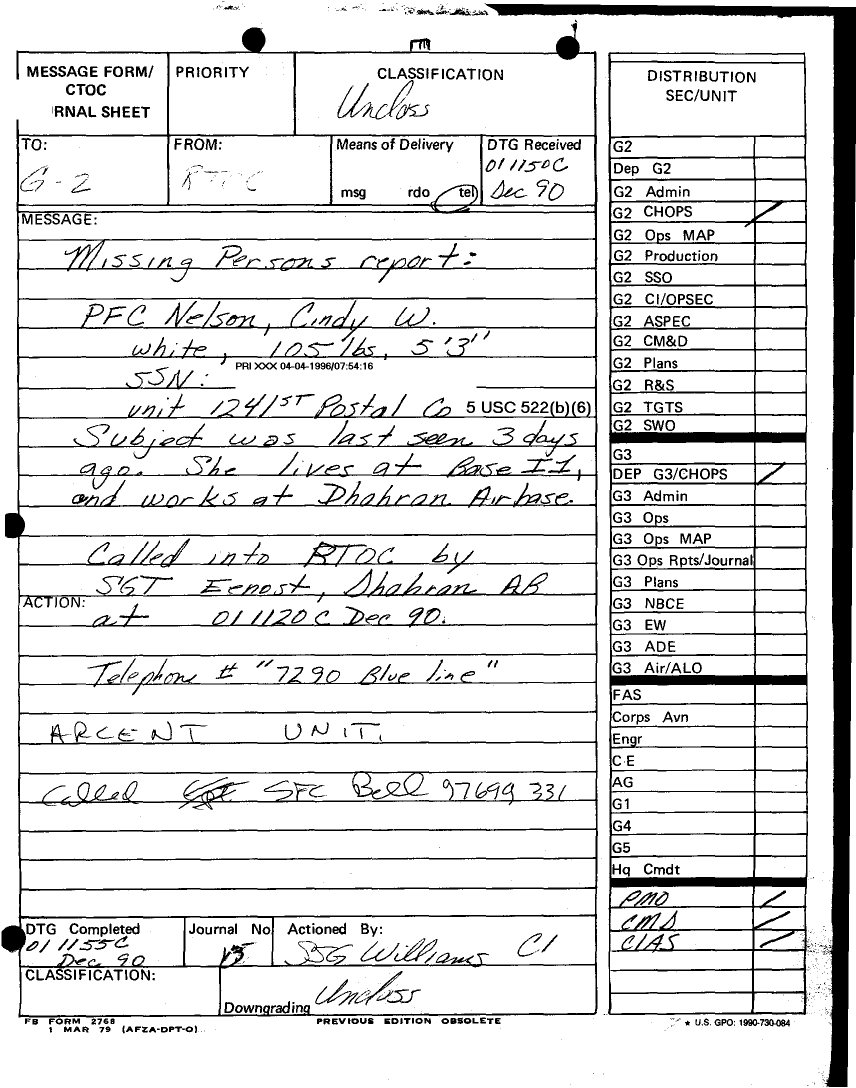 MESSAGE FORM/ CTOC RNAL SHEET
PRIORITY
CLASSIFICATION
Unclass
TO:
G-2
FROM:
RTOC
Means of Delivery
msg rdo tel
DTG Received
011150C
Dec 90
MESSAGE:
Missing Persons report:
PFC Nelson, Cindy W.
white, 105 lbs, 5'3"
PRI XXX 04-04-1996/07:54:16
SSN:
unit 1241ST Postal Co 5 USC 522(b)(6)
Subject was last seen 3 days
ago. She lives at Base II,
and works at Dhahran Airbase.
Called into RTOC by
SGT Eenost, Dhahran AB
ACTION:
at 011120C Dec 90.
Telephone # "7290 Blue line"
ARCENT UNIT.
Called SFC Bell 97699 331
DTG Completed
011155C
Dec 90
Journal No
15
Actioned By:
SSG Williams CI
CLASSIFICATION:
Unclass
Downgrading
FB FORM 2768
1 MAR 79 (AFZA-DPT-O)
PREVIOUS EDITION OBSOLETE
DISTRIBUTION
SEC/UNIT
G2
Dep G2
G2 Admin
G2 CHOPS
G2 Ops MAP
G2 Production
G2 SSO
G2 CI/OPSEC
G2 ASPEC
G2 CM&D
G2 Plans
G2 R&S
G2 TGTS
G2 SWO
G3
DEP G3/CHOPS
G3 Admin
G3 Ops
G3 Ops MAP
G3 Ops Rpts/Journal
G3 Plans
G3 NBCE
G3 EW
G3 ADE
G3 Air/ALO
FAS
Corps Avn
Engr
C-E
AG
G1
G4
G5
Hq Cmdt
PMO
CMD
CIAS
★ U.S. GPO: 1990-730-084